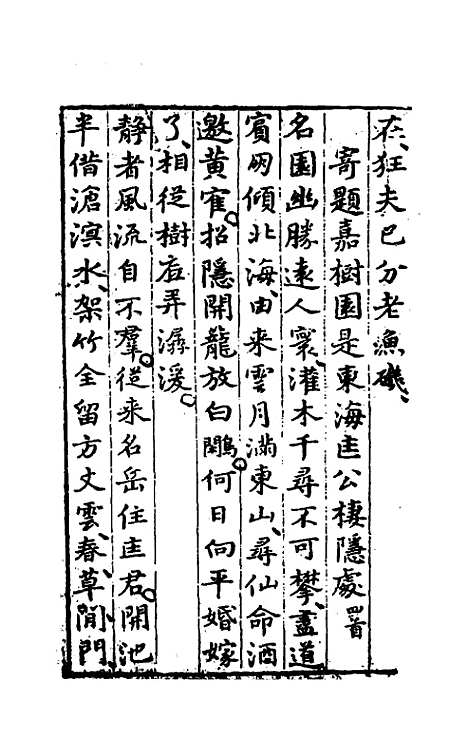 在狂夫已分老漁磯
寄題嘉樹園是東海匡公棲隱處四首
名園幽勝遠人寰灌木千尋不可攀盡道
賓朋傾北海由來雲月滿東山尋仙命酒
邀黃寉招隱開籠放白鷴何日向平婚嫁
了相從樹底弄潺湲
静者風流自不羣從来名岳住匡君開池
半借滄溟水架竹全留方丈雲春草閒門